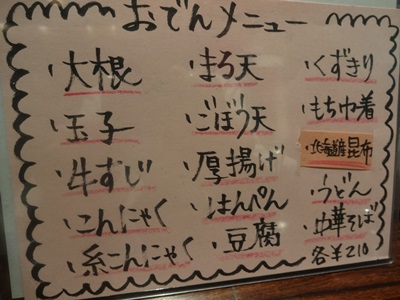 おでんメニュー
大根
玉子
牛すじ
こんにゃく
糸こんにゃく
まる天
ごぼう天
厚揚げ
はんぺん
豆腐
くずきり
もち巾着
北海道産昆布
うどん
中華そば
各¥210